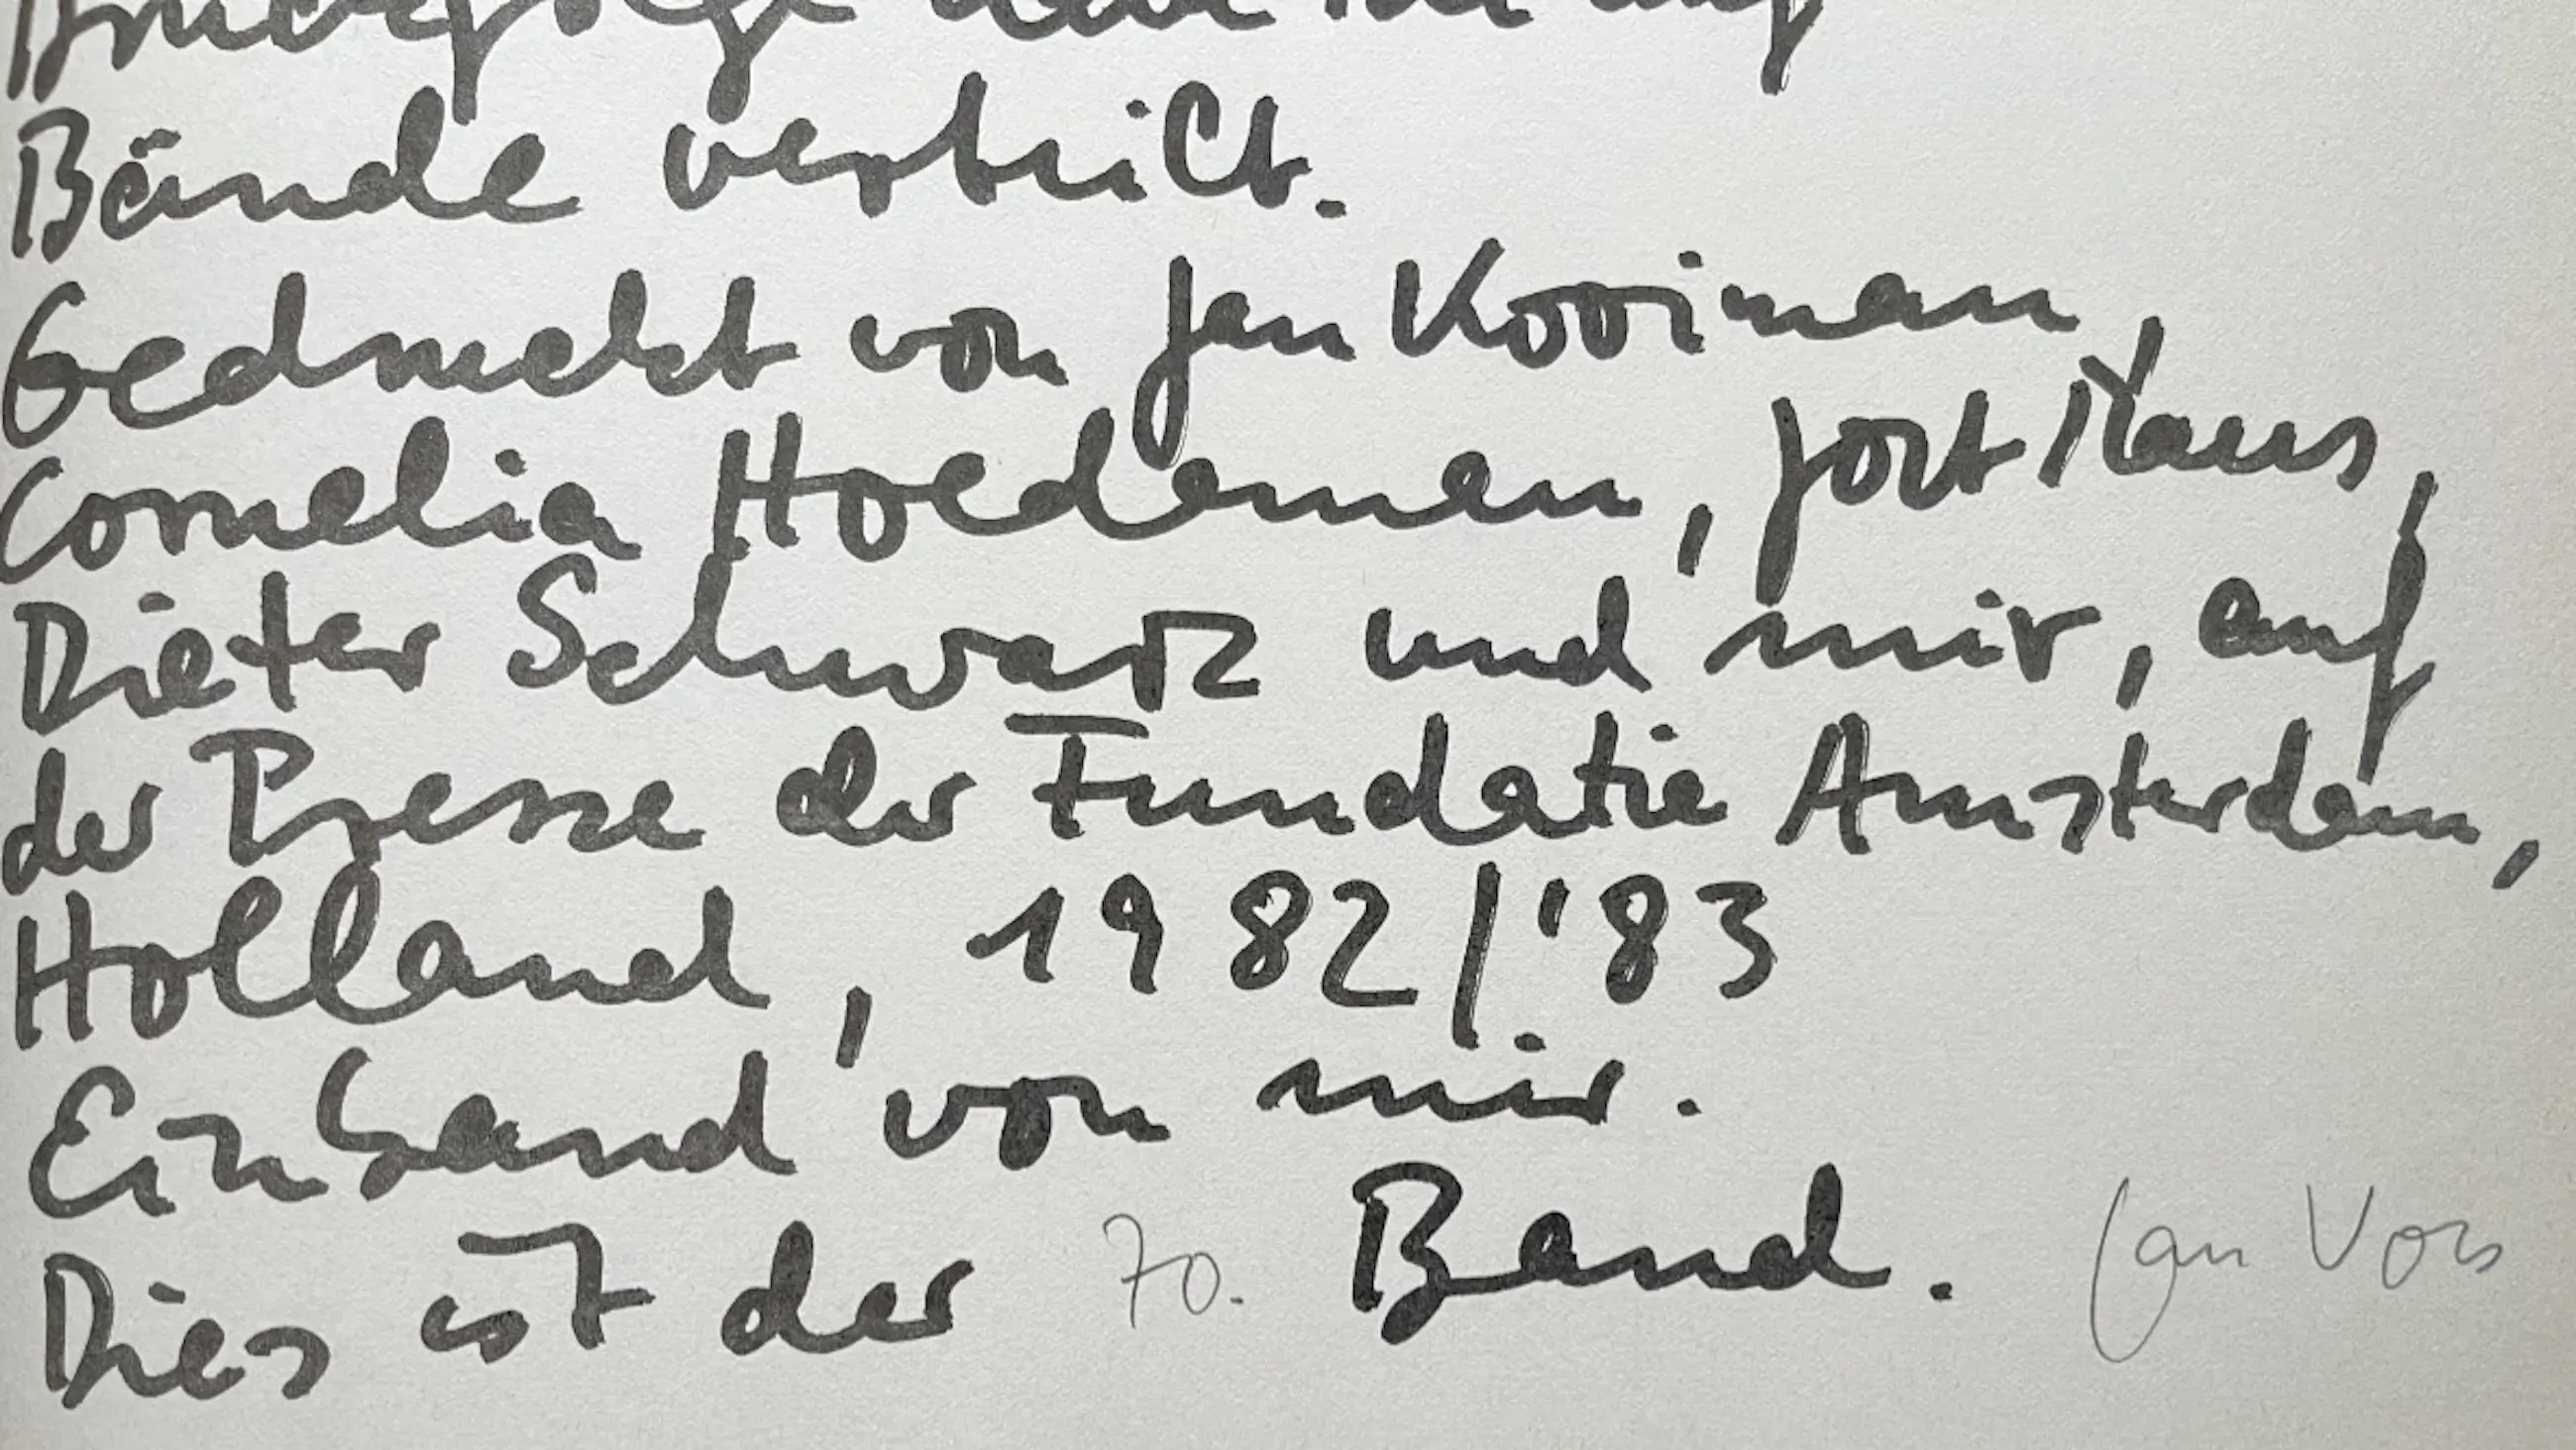 auf
Bände verteilt.
Gedruckt von Jan Kooiman,
Cornelia Hoedeman, Jort Maus,
Dieter Schwarz und mir, auf
der Presse der Fundatie Amsterdam,
Holland, 1982/'83
Einband von mir.
Dies ist der 70. Band. Jan Voss